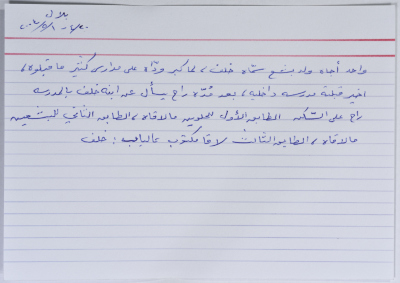 بلال
واحد أجاه ولد بشع سمّاه خلف، لما كبر ودّاه على مدارس كثير ما قبلوه،
اخير قبلة مدرسه داخليه، بعد مُدّه راح يسأل عن ابنه خلف بالمدرسه
راح على السّكن الطابق الأول للحلوين مالاقاه، الطابق الثاني للبشعين
مالاقاه، الطابق الثالث لاقا مكتوب عالباب : خلف